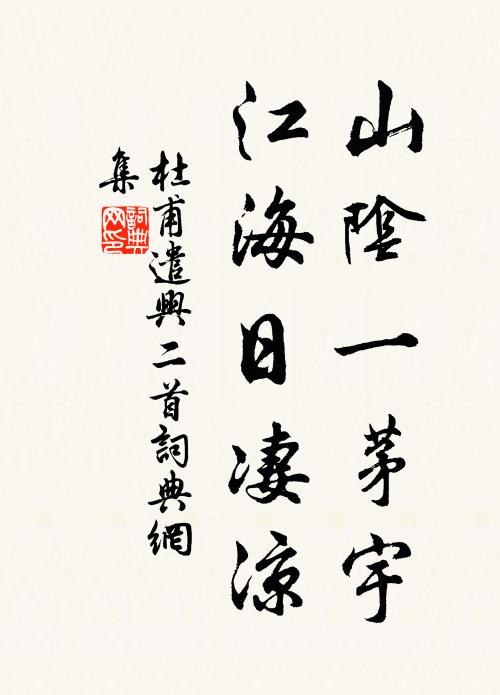 山陰一茅宇
江海日淒涼
杜甫遣興二首詞典網
集
詞典网印